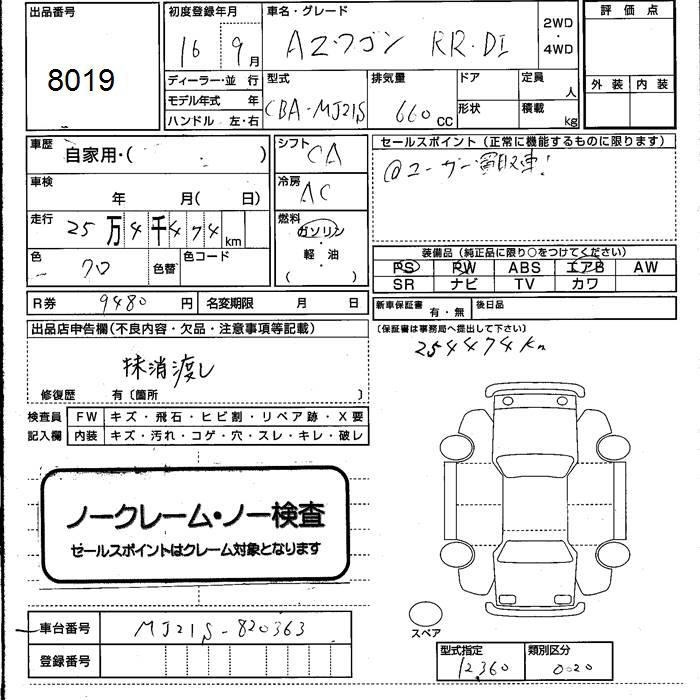 出品番号
8019
初度登録年月
16 9月
車名・グレード
AZ-ワゴン RR-DI
2WD・4WD
評価点
外装 内装
ディーラー・並行
モデル年式 年
ハンドル 左・右
型式
CBA-MJ21S
排気量
660cc
ドア
形状
定員
人
積載
kg
車歴
自家用・( )
シフト
CA
車検
年 月( 日)
冷房
AC
走行
25万4千474km
燃料
ガソリン
軽・油
( )
色
クロ
色替
色コード
R券 9480円
名変期限 月 日
セールスポイント(正常に機能するものに限ります)
@ユーザー買取車!
装備品(純正品に限り○をつけてください)
PS PW ABS エアB AW
SR ナビ TV カワ
新車保証書
有・無
後日品
(保証書は事務局へ提出して下さい)
254474km
出品店申告欄(不良内容・欠品・注意事項等記載)
抹消渡し
修復歴 有〔箇所 〕
検査員記入欄
FW キズ・飛石・ヒビ割・リペア跡・X要
内装 キズ・汚れ・コゲ・穴・スレ・キレ・破レ
ノークレーム・ノー検査
セールスポイントはクレーム対象となります
車台番号 MJ21S-820363
登録番号
スペア
型式指定
12360
類別区分
0020